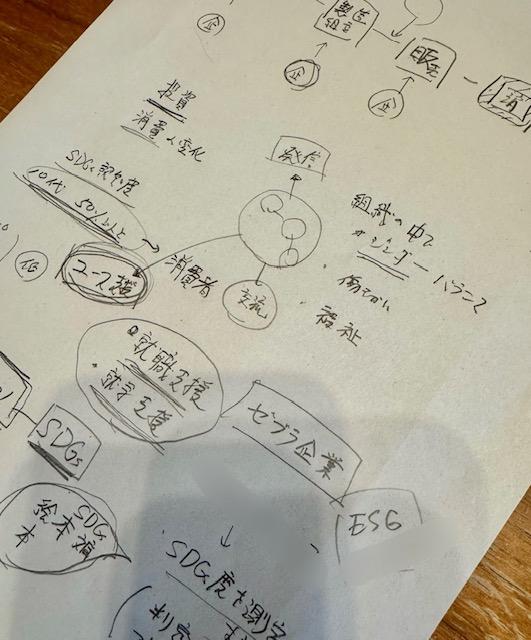 製造
組立
販売
消
企
企
企
投資
消費の変化
発信
SDGs認知度
10代 50%以上
組織の中で
ジェンダーバランス
働きがい
福祉
低
ユース世
消費者
交流
就職支援
就学支援
ゼブラ企業
ESG
SDGs
SDG
絵本
本
SDG度を測定
判定